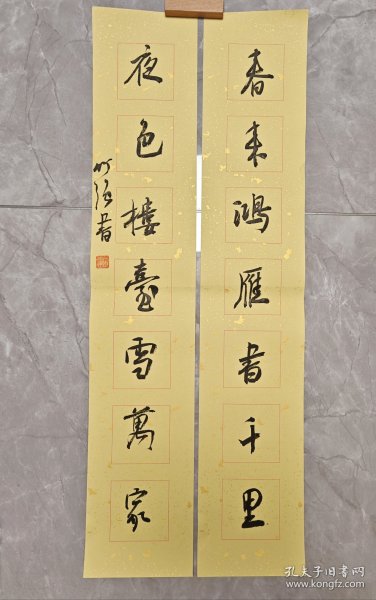 春来鸿雁書千里
夜色樓臺雪萬家
孔夫子旧书网
www.kongfz.com